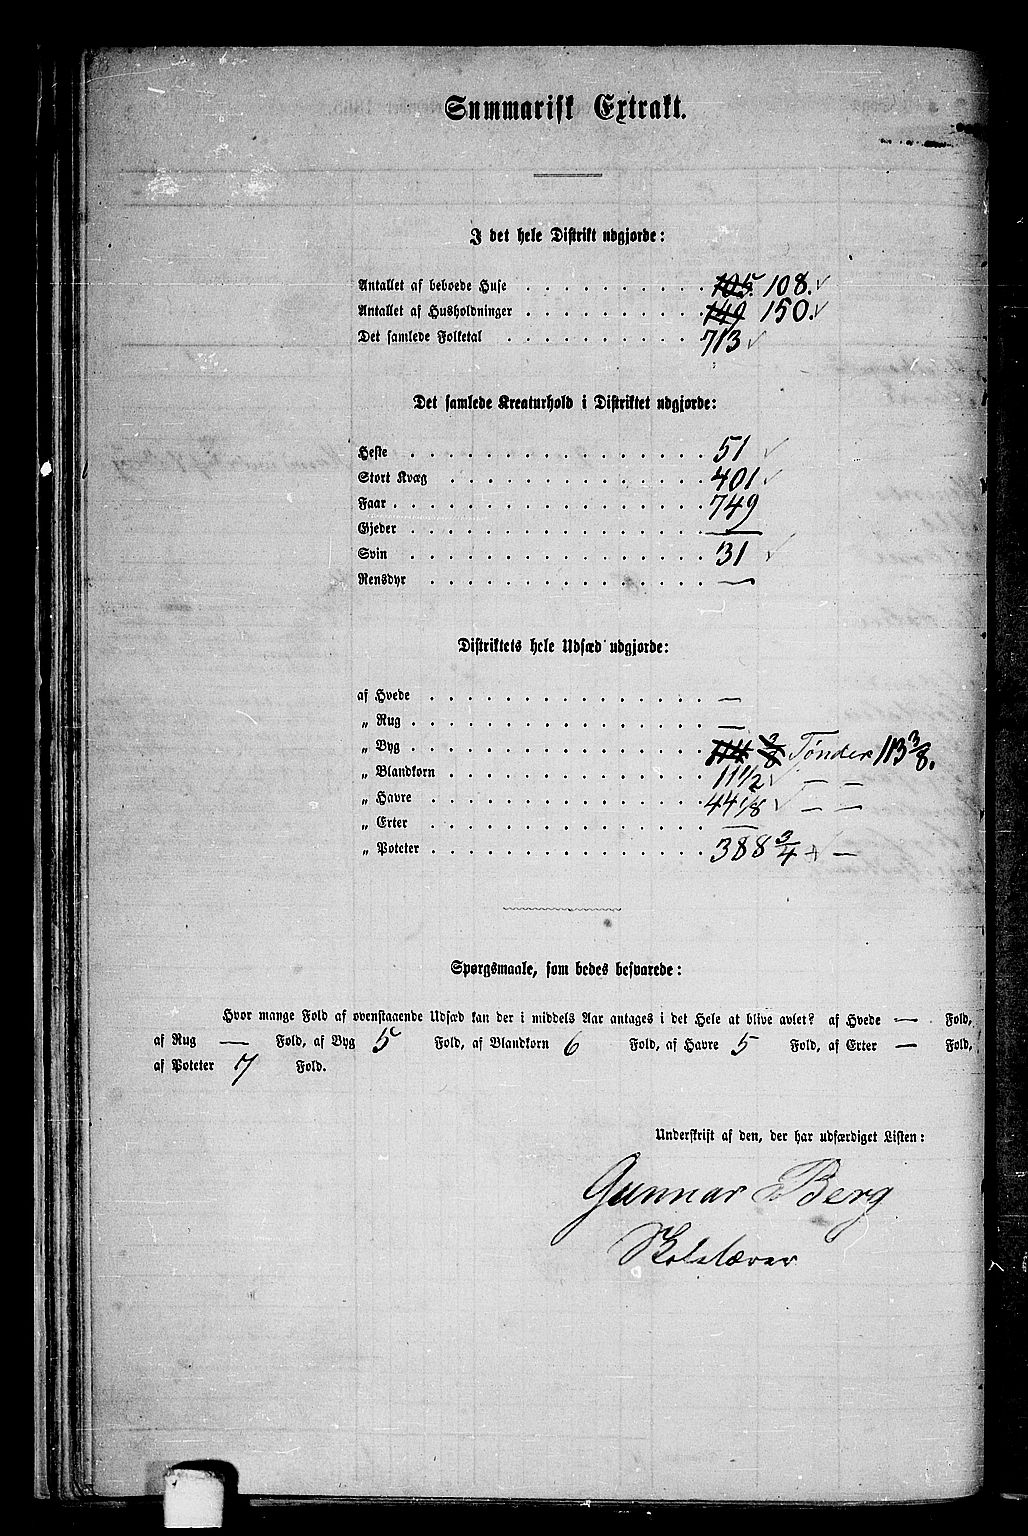 Summarisk Extrakt.
I det hele Distrikt udgjorde:
Antallet af beboede Huse . . . . . . . . 105. 108. ✓
Antallet af Husholdninger . . . . . . . . 149 150. ✓
Det samlede Folketal . . . . . . . . 713 ✓
Det samlede Kreaturhold i Distriktet udgjorde:
Heste . . . . . . . . 51 ✓
Stort Kvæg . . . . . . . . 401 ✓
Faar . . . . . . . . 749
Gjeder . . . . . . . . —
Svin . . . . . . . . 31 ✓
Rensdyr . . . . . . . . —
Distriktets hele Udsæd udgjorde:
af Hvede . . . . . . . . —
„ Rug . . . . . . . . —
„ Byg . . . . . . . . 114 3/8 Tønder 113 3/8.
„ Blandkorn . . . . . . . . 11 1/2 ✓ — —
„ Havre . . . . . . . . 44 1/8 ✓ — —
„ Erter . . . . . . . . —
„ Poteter . . . . . . . . 388 3/4 ✓ —
Spørgsmaale, som bedes besvarede:
Hvor mange Fold af ovenstaaende Udsæd kan der i middels Aar antages i det Hele at blive avlet? af Hvede — Fold,
af Rug — Fold, af Byg 5 Fold, af Blandkorn 6 Fold, af Havre 5 Fold, af Erter — Fold,
af Poteter 7 Fold.
Underskrift af den, der har udfærdiget Listen:
Gunnar Berg
Skolelærer